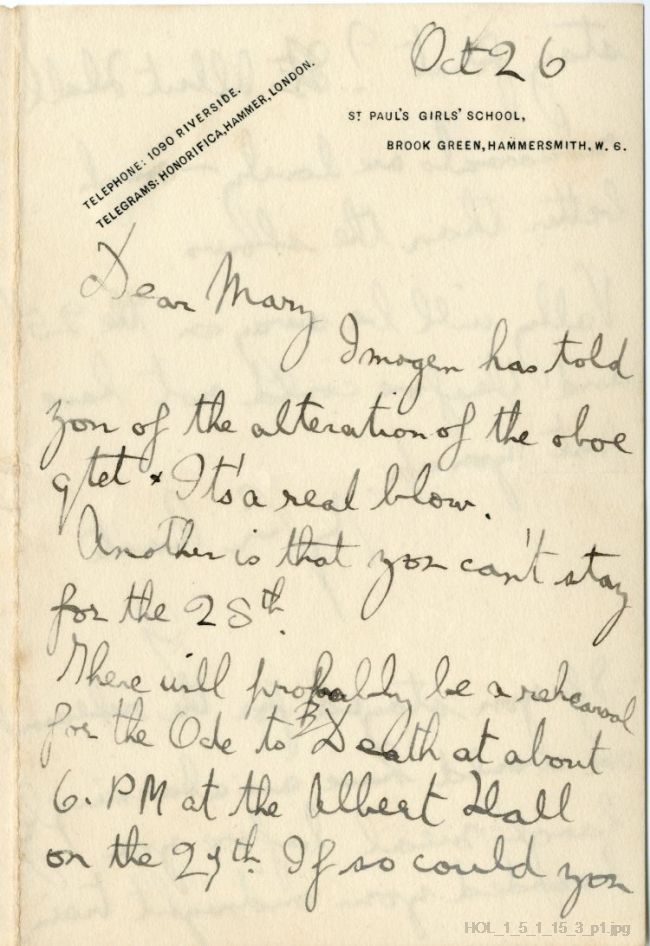 Oct 26
TELEPHONE: 1090 RIVERSIDE.
TELEGRAMS: HONORIFICA, HAMMER, LONDON.
ST PAUL'S GIRLS' SCHOOL,
BROOK GREEN, HAMMERSMITH, W. 6.
Dear Mary
Imogen has told
you of the alteration of the oboe
qtet. It's a real blow.
Another is that you can't stay
for the 28th.
There will probably be a rehearsal
for the Ode to Death at about
6. PM at the Albert Hall
on the 27th. If so could you
HOL_1_5_1_15_3_p1.jpg